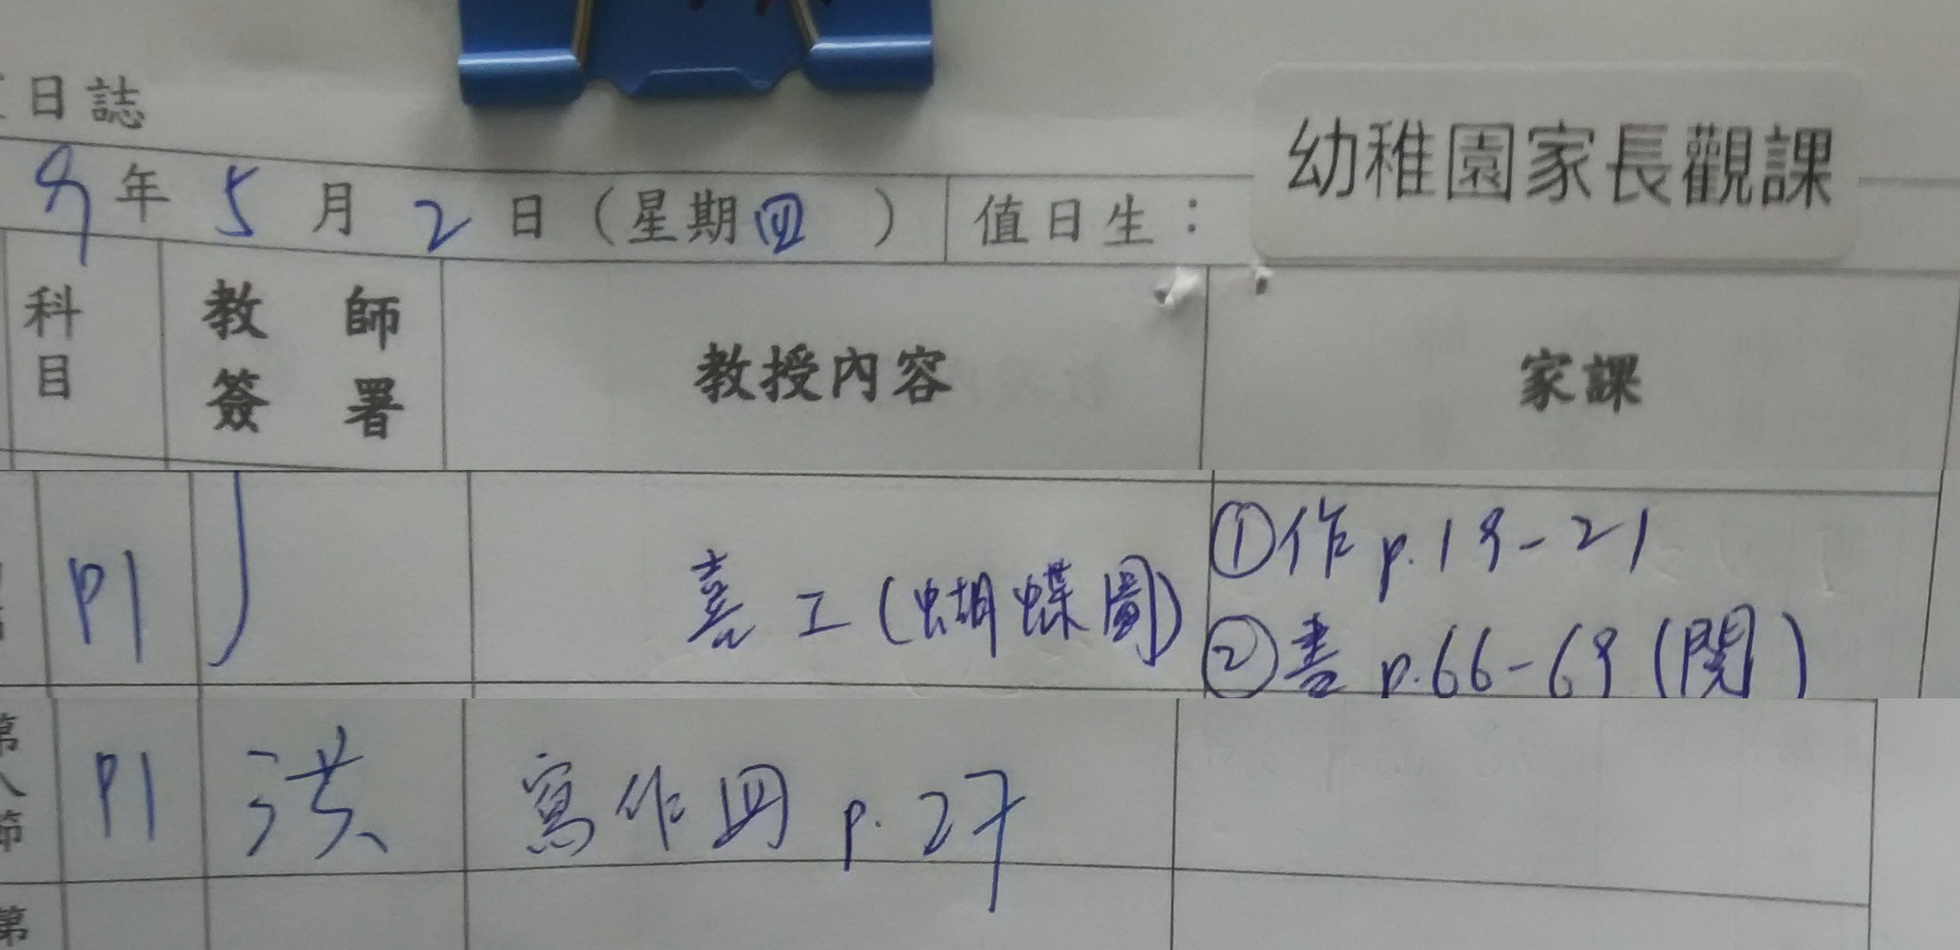 日誌
幼稚園家長觀課
9年5月2日(星期四) 值日生:
科目 教師簽署 教授內容 家課
P1 喜工(蝴蝶圖) ①作 p.19-21
②書 p.66-69(閱)
第八節 P1 洪 寫作四 p.27
第